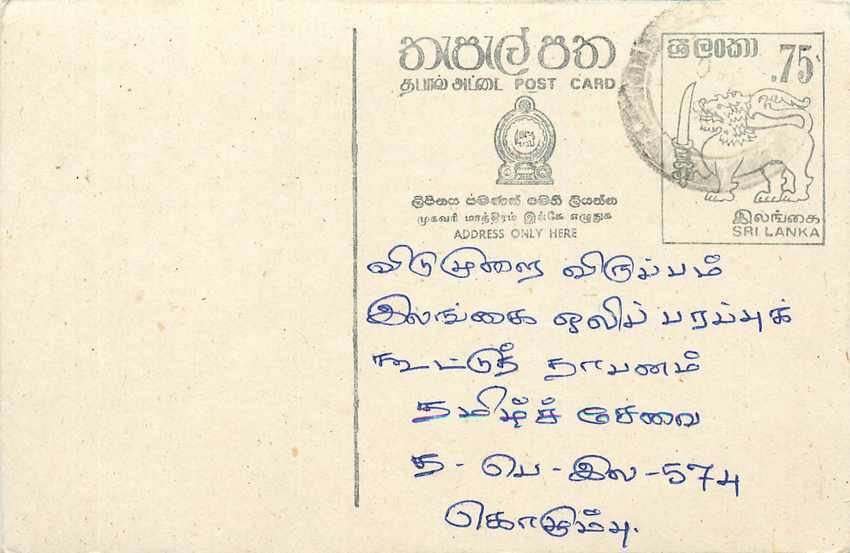 තැපැල් පත
தபால் அட்டை POST CARD
ශ්‍රී ලංකා
.75
இலங்கை
SRI LANKA
ලිපිනය පමණක් මෙහි ලියන්න
முகவரி மாத்திரம் இங்கே எழுதுக
ADDRESS ONLY HERE
விடுமுறை விருப்பம்
இலங்கை ஒலிப் பரப்புக்
கூட்டுத் தாபனம்
தமிழ்ச் சேவை
த - பெ - இல - 574
கொழும்பு.